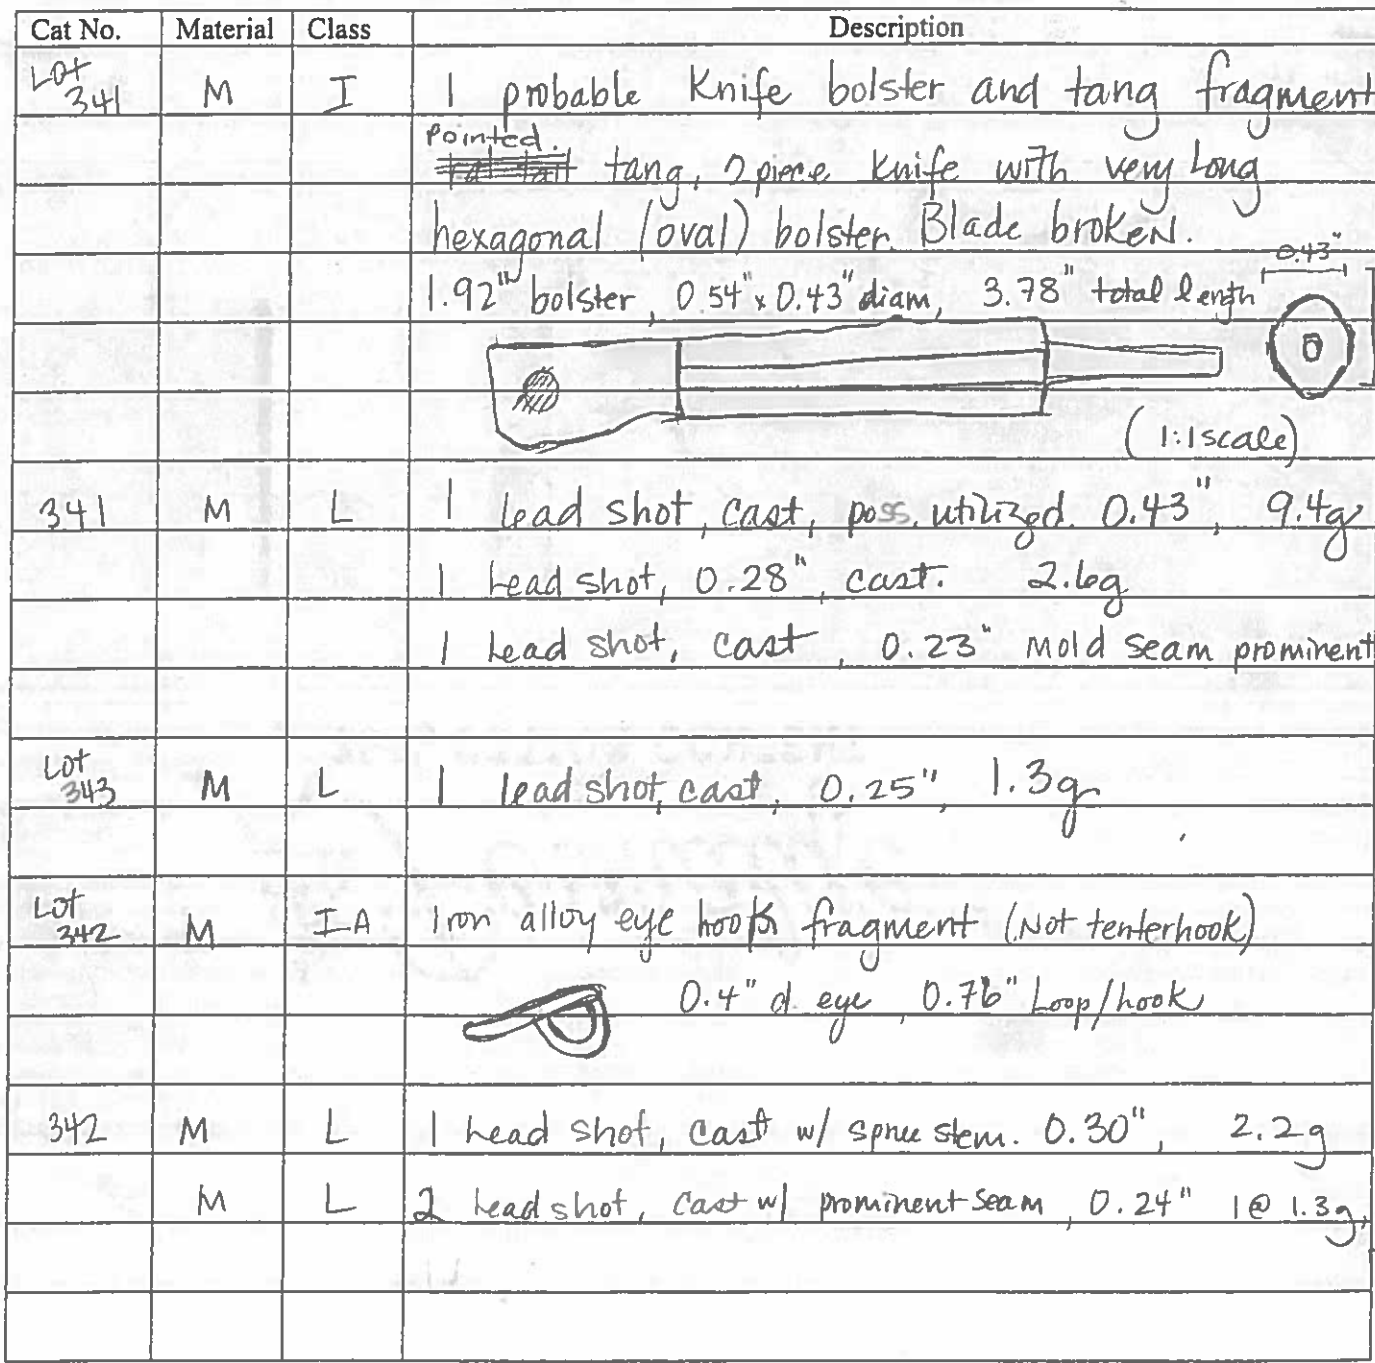 Cat No. Material Class Description
Lot
341 M I 1 probable Knife bolster and tang fragment
Pointed.
tang, 2 piece Knife with very Long
hexagonal (oval) bolster. Blade broken.
0.43"
1.92" bolster, 0.54" x 0.43" diam, 3.78" total length
(1:1 scale)
341 M L 1 Lead shot, cast, poss. utilized. 0.43", 9.4g
1 Lead shot, 0.28", cast. 2.6g
1 Lead shot, cast, 0.23" Mold seam prominent
Lot
343 M L 1 lead shot, cast, 0.25", 1.3g
Lot
342 M IA Iron alloy eye hook fragment (Not tenterhook)
0.4" d. eye, 0.76" Loop/hook
342 M L 1 Lead shot, cast w/ sprue stem. 0.30", 2.2g
M L 2 Lead shot, cast w/ prominent seam, 0.24" 1@ 1.3g,